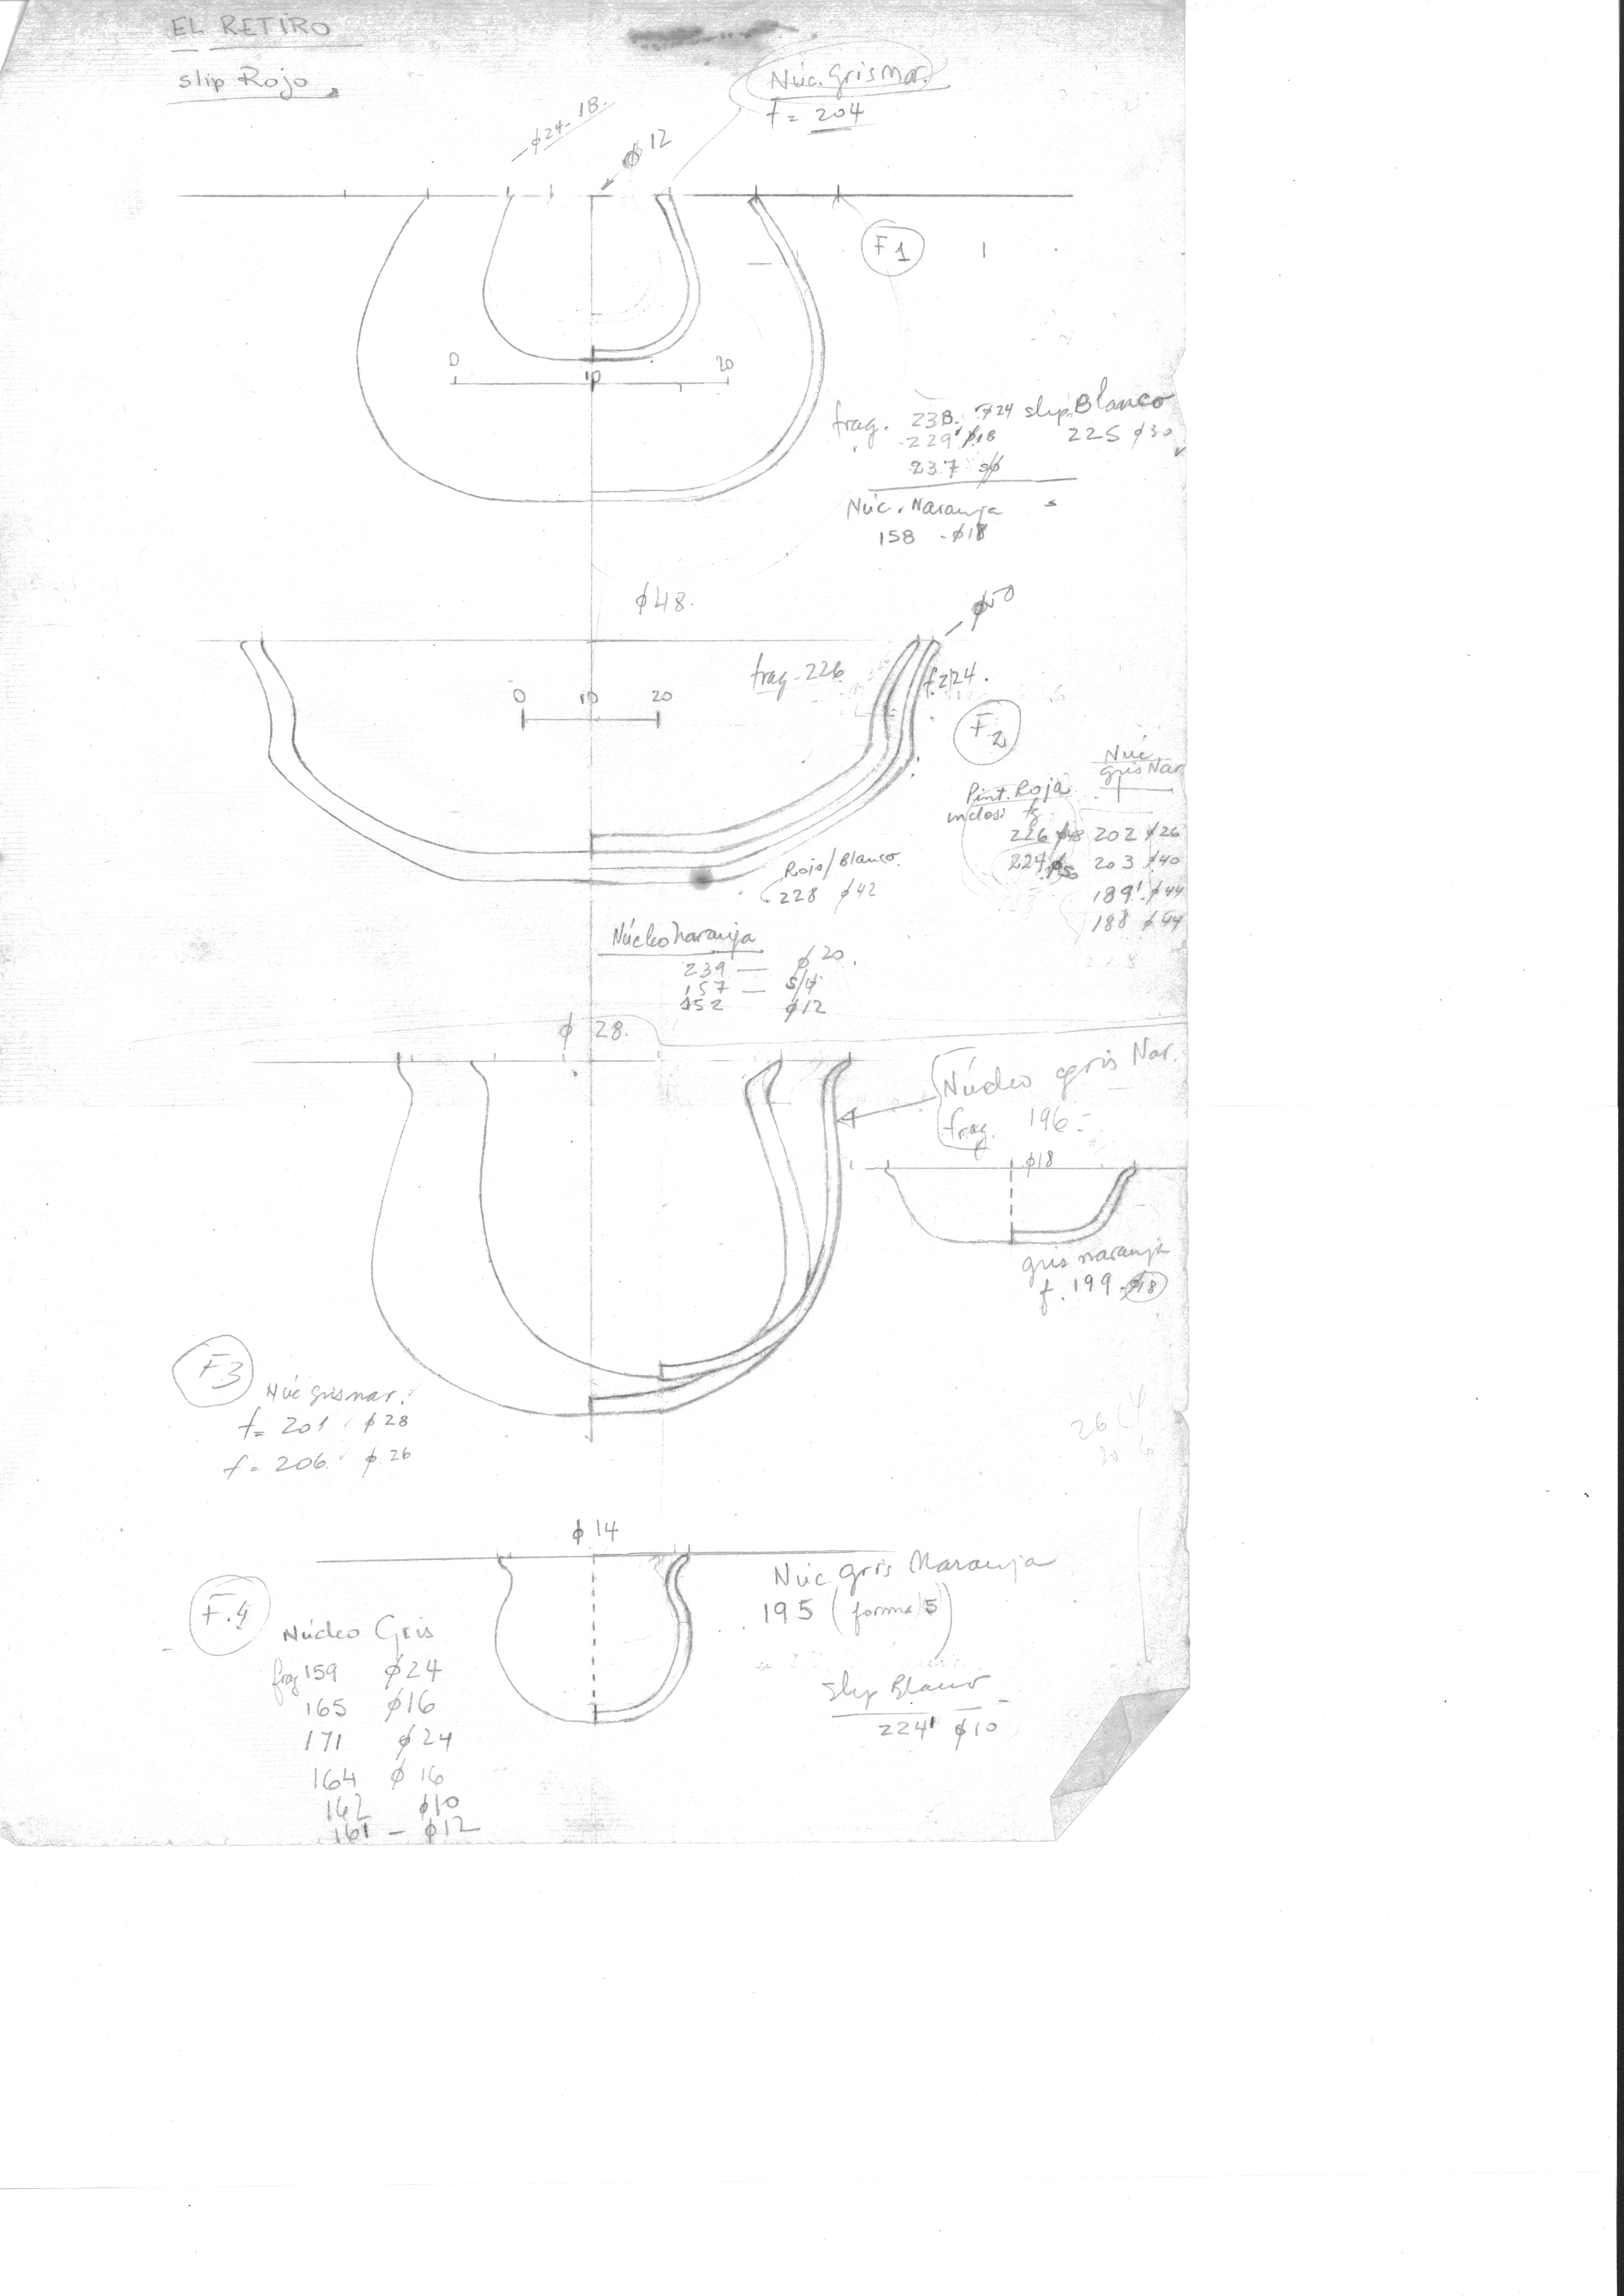 EL RETIRO
slip Rojo
Núc. gris nar.
f = 204
φ24-18.
φ12
F1
0 10 20
frag. 238. φ24 slip. Blanco
229' φ18 225 φ30
237 sφ
Núc. Naranja
158 - φ18
φ48.
φ50
frag-226
f.224.
0 10 20
F2
Núc
gris Nar
Pint. Roja
226 φ48 202 φ26
224 φ50 203 φ40
189' φ44
188 φ44
Rojo/Blanco.
228 φ42
Núcleo naranja
239 — φ20.
157 — s/φ
152 φ12
φ 28.
Núcleo gris Nar.
frag. 196-
φ18
gris naranja
f. 199 - φ18
F3
Núc gris nar.
f = 201 φ28
f = 206 φ26
26
20 6
φ14
F.4
Núc gris Naranja
195 (forma 5)
Núcleo Gris
frag 159 φ24
165 φ16
171 φ24
164 φ16
162 φ10
161 - φ12
Slip Blanco
224' φ10